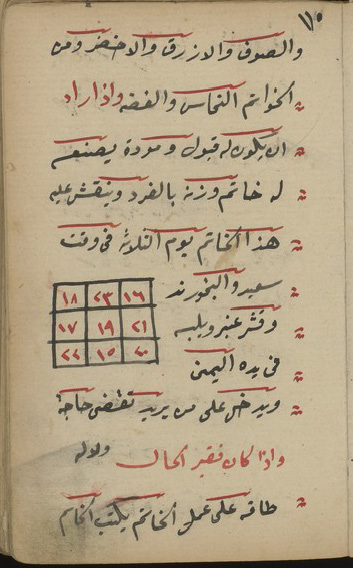 ١١٥
والصوف والازرق والاخضر ومن
الخواتم النحاس والفضه واذا اراد
ان يكون له قبول ومودة يصنع
له خاتم وزنه بالفرد وينقش عليه
هذا الخاتم يوم الثلاثه فى وقت
سعيد والبخور ند
وقشر عنبر ويلبسه
فى يده اليمنى
١٦ ٢٣ ١٨
٢١ ١٩ ١٧
٢٠ ١٥ ٢٢
ويدخل على من يريد تقضى حاجة
واذا كان فقير الحال ولا له
طاقه على عمل الخاتم يكتب الخاتم